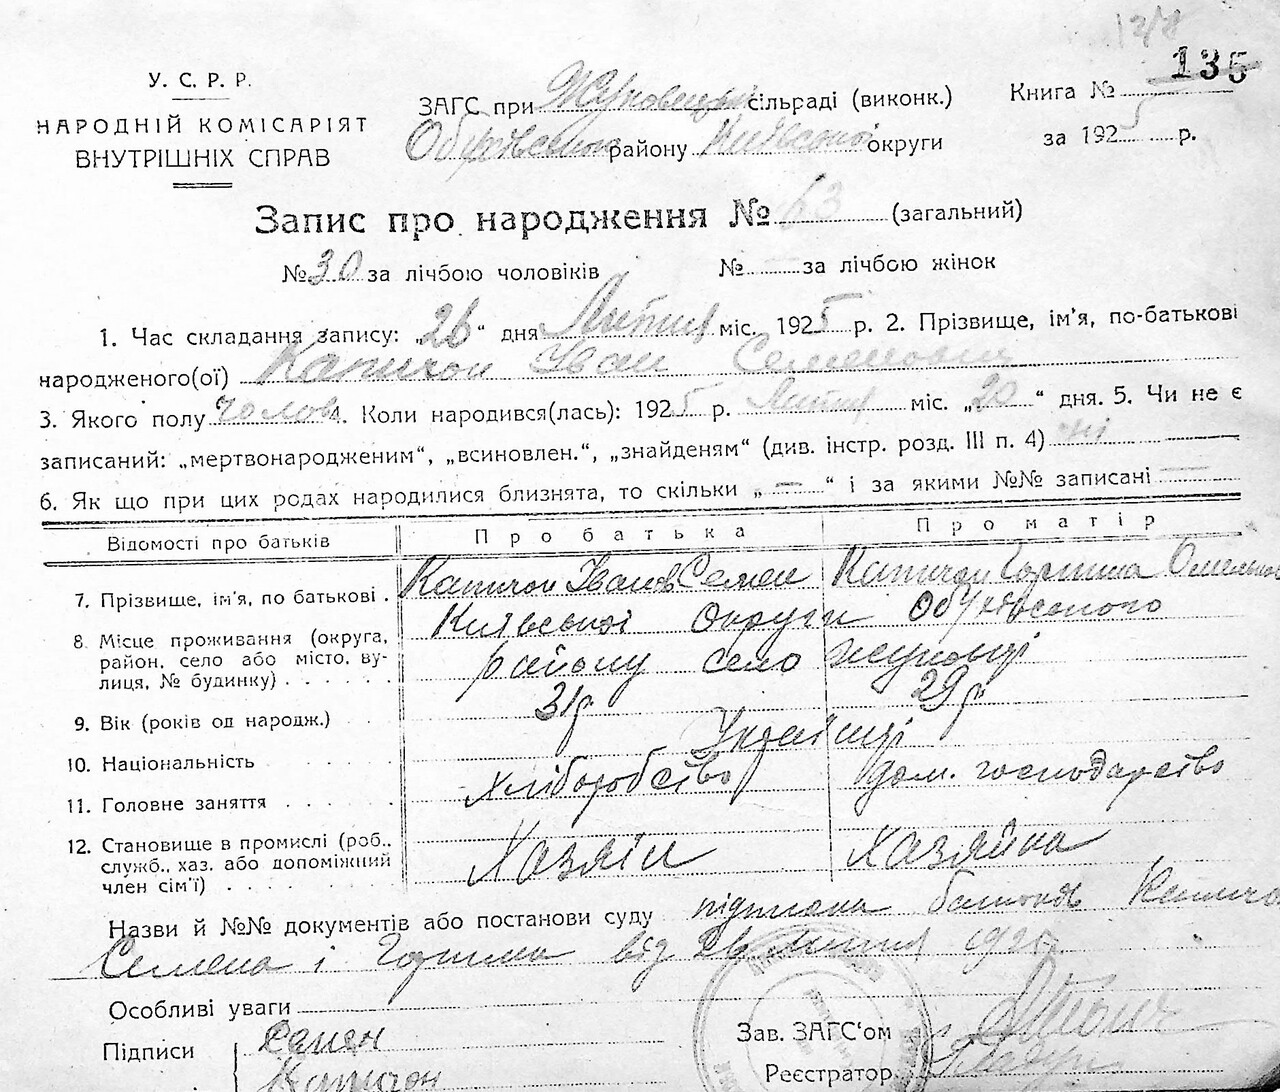 135
У. С. Р. Р.
НАРОДНІЙ КОМІСАРІЯТ
ВНУТРІШНІХ СПРАВ
ЗАГС при сільраді (виконк.)
району Київської округи
Книга №
за 1925 р.
Запис про народження № 63 (загальний)
№ 30 за лічбою чоловіків № за лічбою жінок
1. Час складання запису: „26“ дня Липня міс. 1925 р. 2. Прізвище, ім'я, по-батькові
народженого(ої) Іван Семенович
3. Якого полу чолов 4. Коли народився(лась): 1925 р. Липня міс. „20“ дня. 5. Чи не є
записаний: „мертвонародженим“, „всиновлен.“, „знайденям“ (див. інстр. розд. III п. 4) ні
6. Як що при цих родах народилися близнята, то скільки „ — “ і за якими №№ записані —
Відомості про батьків Про батька Про матір
7. Прізвище, ім'я, по батькові . Іванов Семен
8. Місце проживання (округа, Київської округи
район, село або місто, ву- району село Жуковці
лиця, № будинку) . . . . .
9. Вік (років од народж.) . . 31р 29р
10. Національність . . . . Українці
11. Головне заняття . . . . . Хліборобство дом. господарство
12. Становище в промислі (роб., Хазяїн Хазяйка
служб., хаз. або допоміжний
член сім'ї) . . . . . . . .
Назви й №№ документів або постанови суду
Семена і від 26 липня
Особливі уваги
Підписи Семен
Зав. ЗАГС'ом
Реєстратор